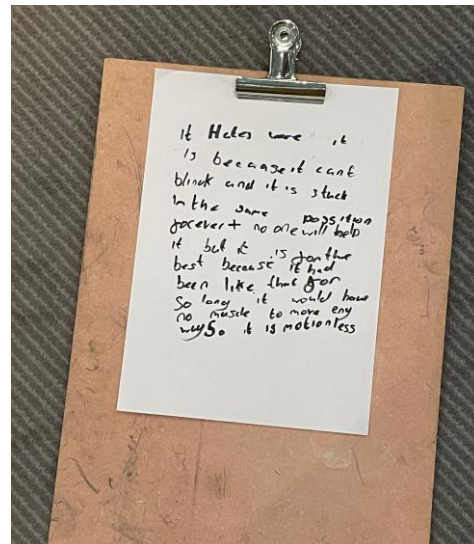 it Hates were it
is because it cant
blink and it is stuck
in the same possition
forever + no one will help
it but it is for the
best because it had
been like that for
So long it would have
no muscle to move eny
way So it is motionless